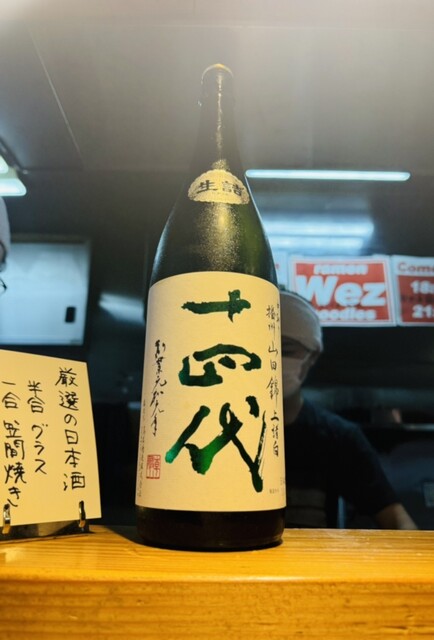 生詰
十四代
播州 山田錦 上諸白
厳選の日本酒
半合 グラス
一合 笠間焼き
ramen
Wez
noodles
Come
18:
21: